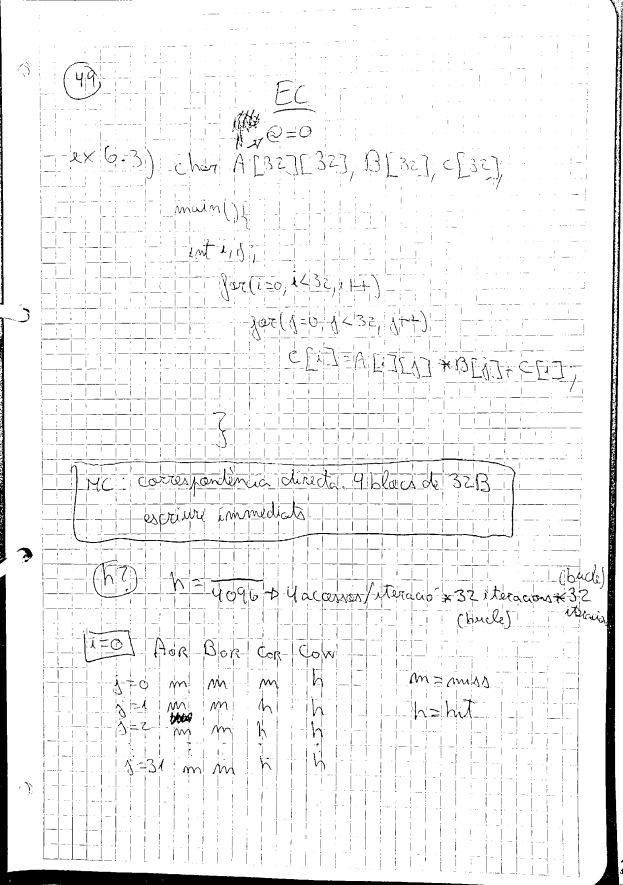 49
EC
A → @=0
ex 6.3) char A[32][32], B[32], C[32];
main(){
int i,j;
for(i=0, i<32, i++)
for(j=0, j<32, j++)
C[i]=A[i][j] * B[j] + C[i];
}
MC: correspondència directa. 4 blocs de 32B
escriure immediats
h? h = ─ / 4096 → 4 accessos/iteració * 32 iteracions (bucle) * 32 (bucle)
i=0 A0R B0R C0R C0W
j=0 m m m h m=miss
j=1 m m h h h=hit
j=2 m m h h
⋮ ⋮ ⋮ ⋮ ⋮
j=31 m m h h